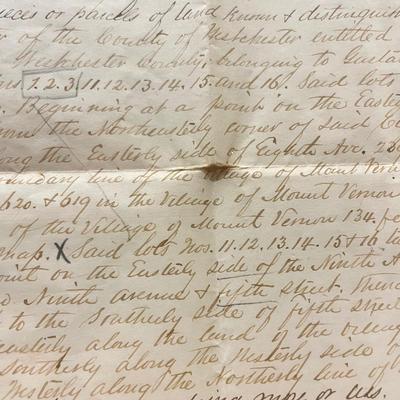 pieces or parcels of land known & distinguis
of the County of Westchester entitled
Westchester County, belonging to Gusta
1. 2. 3 11. 12. 13. 14. 15. and 16. Said lots
Beginning at a point on the Easte
the Northeasterly corner of said
along the Easterly side of Eighth Ave.
boundary line of the village of Mount Vern
620. & 619 in the Village of Mount Vernon
of the Village of Mount Vernon 134. fe
map. X Said lots Nos. 11. 12. 13. 14. 15 & 16 ta
point on the Easterly side of the Ninth A
Ninth avenue & fifth street, then
to the Southerly side of fifth street
easterly along the land of the villag
Southerly along the Westerly side o
Westerly along the Northerly line of
or less.